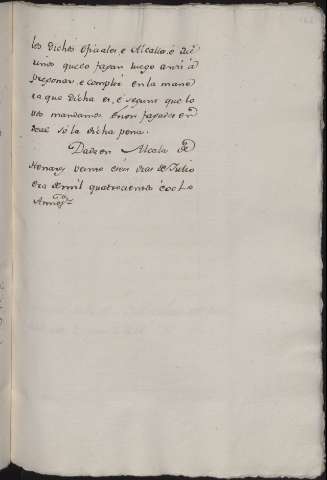 los dichos oficiales, e Alcalles, é Al
que lo fagan luego ansi á
pregonar, e complir en la mane
ra que dicha es, é segunt que lo
vos mandamos é non fagades en
deal so la dicha pena.
Dada en Alcala de
Henares veinte é seis dias de Julio
era de mil quatrocientos é ocho
Annos